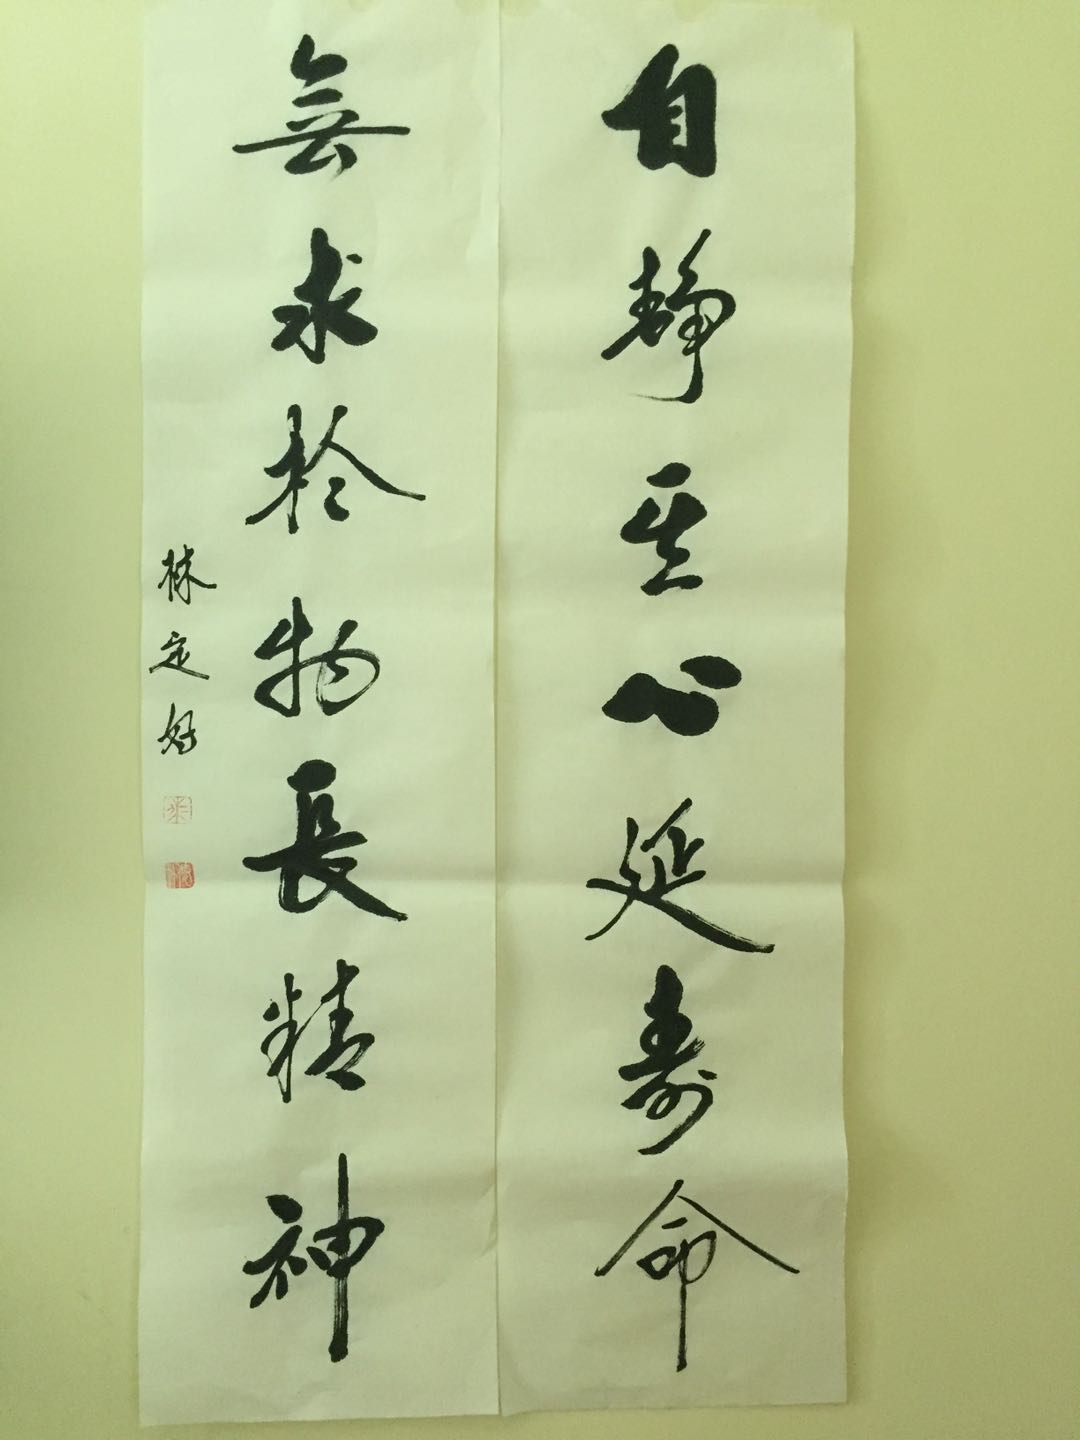 自静其心延寿命
無求於物長精神
林定好